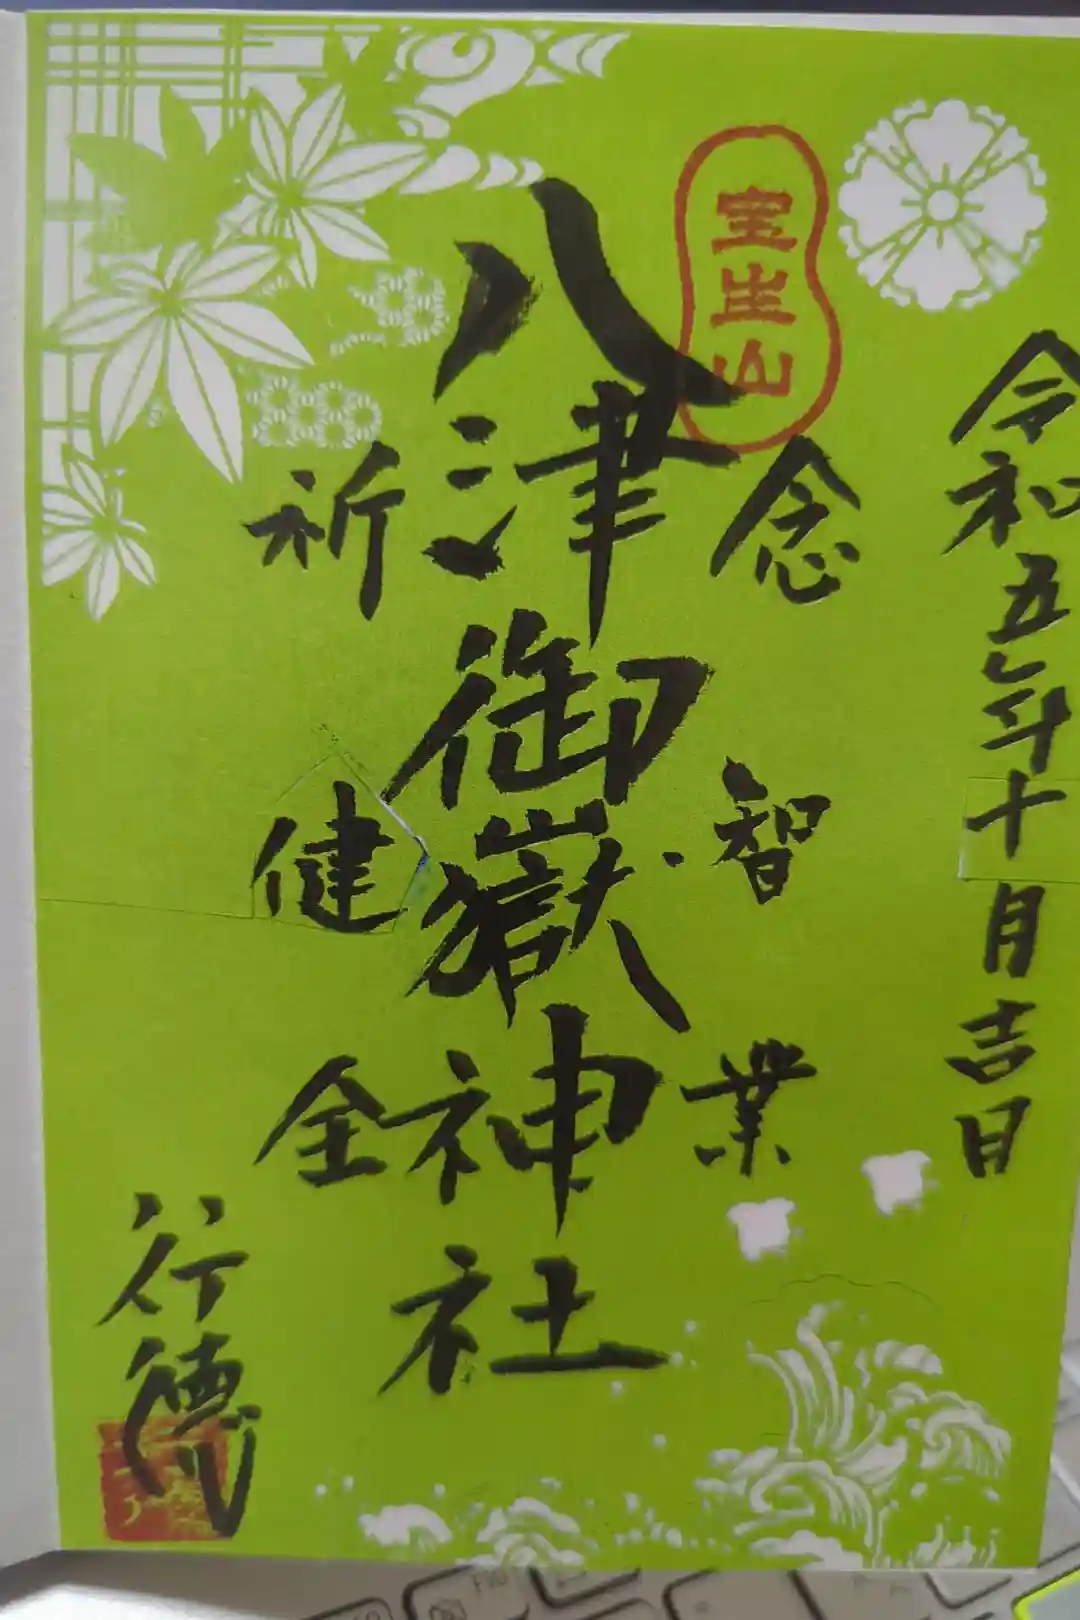 令和五年十月吉日
宝生山
念
智
業
八津御嶽神社
祈
健
全
行徳